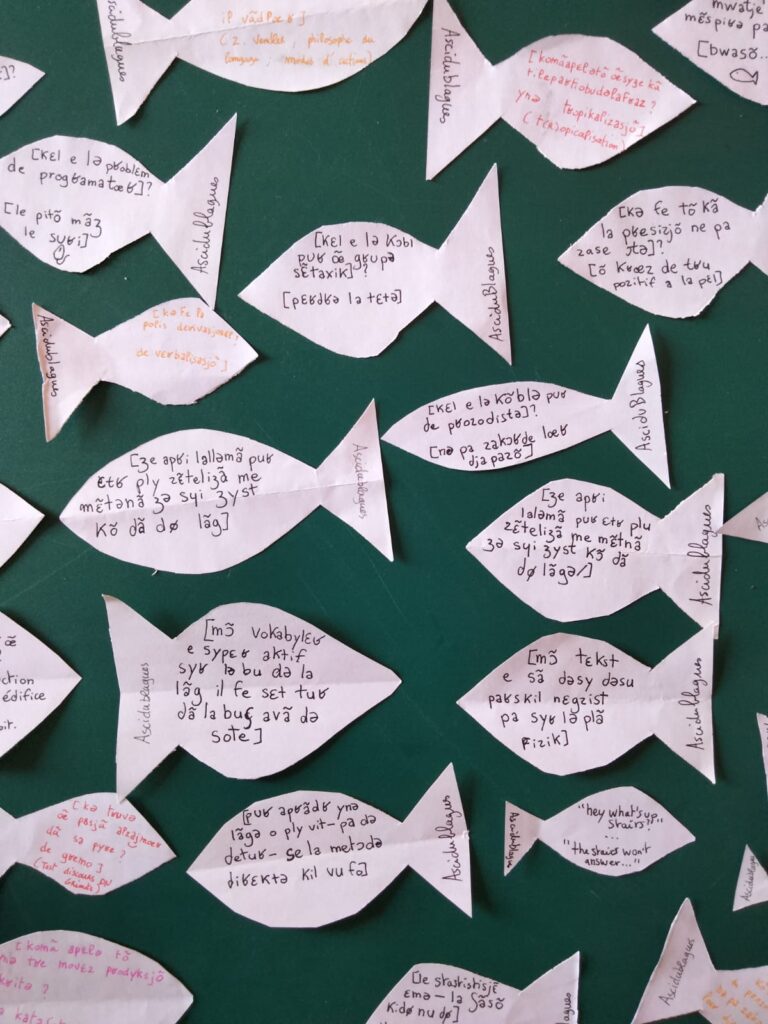 Ascidublagues
il vãdʁœʁ]
(Z. Vendler, philosophe du
langage, modes d'action)
Ascidublagues
[komãapelətõ œ̃syʒe kã
til e partobudəlafʁaz?
ynə tʁopikalizasjõ]
(t(r)opicalisation)
mwatje
mɛ̃spiʁə pa
[bwasõ...
]?
[kɛl e lə pʁoblɛm
de pʁogʁamatœʁ]?
[le pitõ mãʒ
le suʁi]
Ascidublagues
[kɛl e lə kɔbl
puʁ œ̃ gʁupə
sɛ̃taxik]?
[pɛʁdʁə la tɛtə]
AsciduBlagues
[kə fe tõ kã
la pʁesizjõ ne pa
zase ʃtə]?
[õ kʁœz de tʁu
pozitif a la pɛl]
Ascidublagues
[kə fe la
polis deʁivasjonɛl
de vɛʁbalizasjõ]
[kɛl e lə kõblə puʁ
de pʁozodistə]?
[nə pa zakɔʁde lœʁ
djapazõ]
AsciduBlagues
[ʒe apʁi lalləmã puʁ
ɛtʁ ply zɛ̃teliʒã me
mɛ̃tənã ʒə sɥi ʒyst
kõ dã dø lãg]
Ascidublagues
[ʒe apʁi
laləmã puʁ ɛtʁ plu
zɛ̃teliʒã me mɛ̃tnã
ʒə sɥi ʒyst kɔ̃ dã
dø lãgə/]
Ascidublagues
Ascidublagues
[mɔ̃ vokabylɛʁ
e sypɛʁ aktif
syʁ lə bu də la
lãg il fe sɛt tuʁ
dã la buʃ avã də
sote]
[mɔ̃ tɛkst
e sã dəsy dəsu
paʁskil nɛgzist
pa syʁ lə plã
fizik]
Ascidublagues
œ̃
ction
édifice
bit.
[kə tʁuvə
õ
dã sa pyʁe?
de gʁemo]
[puʁ apʁãdʁ ynə
lãgə o ply vit-pa də
detuʁ- se la metodə
diʁɛktə kil vu fo]
Ascidublagues
Ascidublagues
"hey what's up,
stairs?"
...
"the stairs won't
answer..."
Ascidublagues
[komã apelə tõ
ynə tʁe movez pʁodyksjõ
ekʁitə?
[le statistisjɛ̃
ɛmə - la ʃãsõ
kidə nu dø]
Ascidublagues